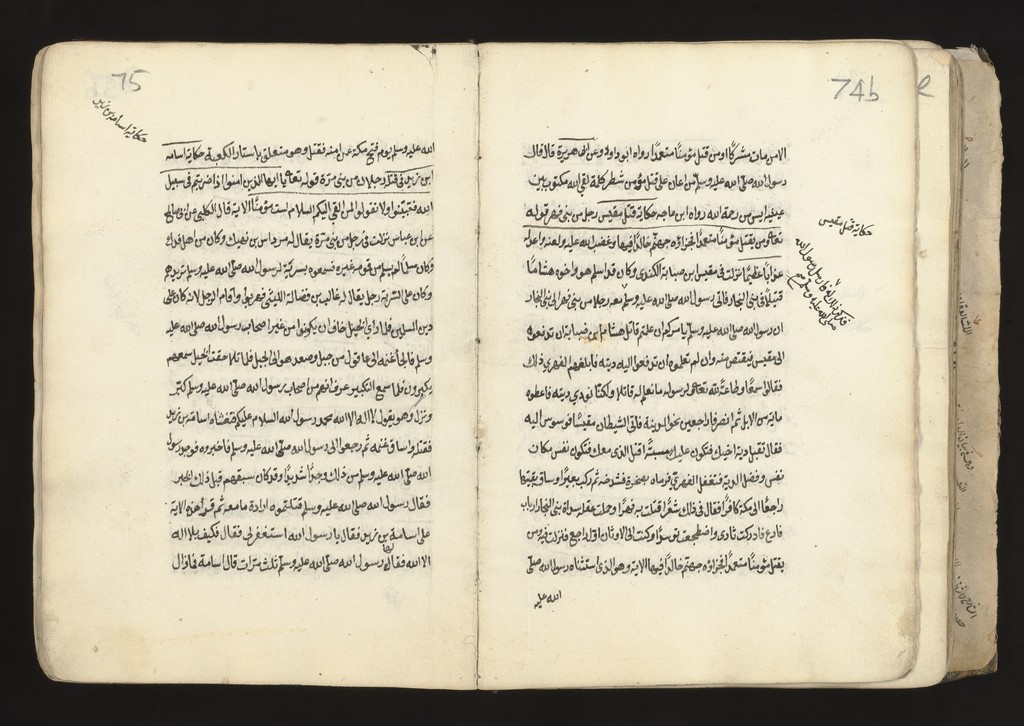 74b
الا من مات مشركا او من قتل مؤمنا متعمدا رواه ابو داود وعن ابى هريرة قال قال
رسول الله صلى الله عليه وسلم من اعان على قتل مؤمن بشطر كلمة لقى الله مكتوب بين
عينيه ايس من رحمة الله رواه ابن ماجه حكاية قتل مقيس رجل من بنى فهر قوله
تعالى ومن يقتل مؤمنا متعمدا فجزاؤه جهنم خالدا فيها وغضب الله عليه ولعنه واعد له
عذابا عظيما نزلت فى مقيس ابن صبابة الكندى وكان قد اسلم هو واخوه هشاما
قتيلا فى بنى النجار فاتى رسول الله صلى الله عليه وسلم معه رجلا من بنى فهر الى بنى النجار
ان رسول الله صلى الله عليه وسلم يامركم ان علمتم قاتل هشام ابن ضبابة ان تدفعوه
الى مقيس فيقتص منه وان لم تعلموه ان تدفعوا اليه ديته فابلغهم الفهرى ذلك
فقالوا سمعا وطاعة لله تعالى ولرسوله ما نعلم له قاتلا ولكنا نودى ديته فاعطوه
ماية من الابل ثم انصرفا راجعين نحو المدينة فاتى الشيطان مقيسا فوسوس اليه
فقال تقبل دية اخيك فتكون عليك مسبة اقتل الذى معك فتكون نفس مكان
نفس وفضل الدية فتغفل الفهرى فرماه بصخرة فشدخه ثم ركب بعيرا وساق بقيتها
راجعا الى مكة كافرا فقال فى ذلك شعرا قتلت به فهرا وحملت عقله سراة بنى النجار ارباب
فارع فادركت ثارى واضطجعت موسدا وكنت الى الاوثان اول راجع فنزلت فيه ومن
يقتل مؤمنا متعمدا فجزاؤه جهنم خالدا فيها الاية وهو الذى استثناه رسول الله صلى
الله عليه
حكاية قتل مقيس
فذكر ذلك له فارسل رسول الله
صلى الله عليه وسلم صح
75
حكاية اسامة بن زيد
الله عليه وسلم يوم فتح مكة عن امنه فقتل وهو متعلق باستار الكعبة حكاية اسامه
ابن زيد فى قتله رجلا من بنى مرة قوله تعالى يا ايها الذين امنوا اذا ضربتم فى سبيل
الله فتبينوا ولا تقولوا لمن القى اليكم السلام لست مؤمنا الاية قال الكلبى عن ابى صالح
عن ابن عباس نزلت فى رجل من بنى مرة يقال له مرداس بن نهيك وكان من اهل فدك
وكان مسلما لم يسلم من قومه غيره فسمعوه بسرية لرسول الله صلى الله عليه وسلم تريدهم
وكان على السرية رجل يقال له غالب بن فضالة الليثى فهربوا واقام الرجل لانه كان على
دين المسلمين فلما راى الخيل خاف ان يكونوا من غير اصحاب رسول الله صلى الله عليه
وسلم فالجى غنمه الى عاقول من جبل وصعد هو الى الجبل فلما تلاحقت الخيل سمعهم
يكبرون فلما سمع التكبير عرف انهم من اصحاب رسول الله صلى الله عليه وسلم كبر
ونزل وهو يقول لا اله الا الله محمد رسول الله السلام عليكم فتغشاه اسامة بن زيد
فقتله وساق غنمه ثم رجعوا الى رسول الله صلى الله عليه وسلم فاخبروه فوجد رسول
الله صلى الله عليه وسلم من ذلك وجدا شديدا وقد كان سبقهم قبل ذلك الخبر
فقال رسول الله صلى الله عليه وسلم قتلتموه ارادة ما معه ثم قرأ هذه الاية
على اسامة بن زيد فقال يا رسول الله استغفر لى فقال فكيف بلا اله
الا الله فقال رسول الله صلى الله عليه وسلم ثلث مرات قال اسامة فما زال